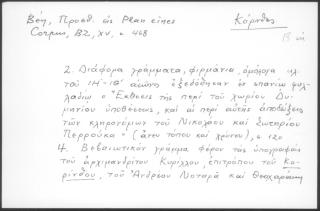 Βέη, Προσθ. εἰς Plan eines
Κόρινθος
Corpus, BZ, XV, σ 468
2. Διάφορα γράμματα, φιρμάνια, ὁμόλογα κλ.
τοῦ αἰῶνος ἐξεδόθησαν ἐν σπανίῳ φυλ-
λαδίῳ "Ἔκθεσις τῆς περὶ τοῦ χωρίου Δυ-
μηνίου ὑποθέσεως, καὶ αἱ περὶ αὐτῆς ἀποδείξεις
τῶν κληρονόμων τοῦ Νικολάου καὶ Σωτηρίου
Περρούκα" (ἄνευ τόπου καὶ χρόνου), σ. 120
4. Βεβαιωτικὸν γράμμα φέρον τὰς ὑπογραφὰς
τοῦ ἀρχιμανδρίτου Κυρίλλου, ἐπιτρόπου τοῦ Κο-
ρίνθου, τοῦ Ἀνδρέου Νοταρᾶ καὶ